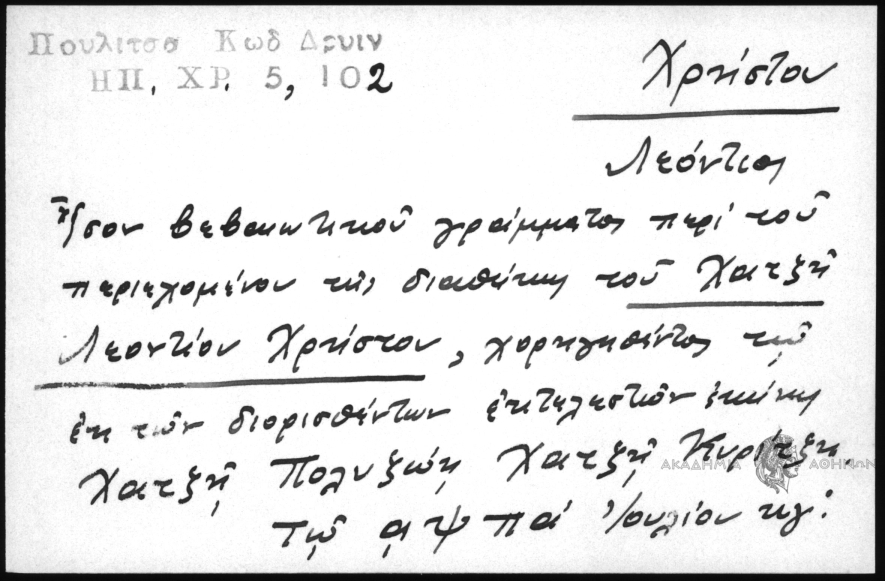 Πουλιτσα Κωδ Δρυιν
ΗΠ. ΧΡ. 5, 102
Χρήστου
Λεόντιος
Ἴσον βεβαιωτικοῦ γράμματος περὶ τοῦ
περιεχομένου τῆς διαθήκης τοῦ Χατζῆ
Λεοντίου Χρήστου, χορηγηθέντος τῷ
ἐκ τῶν διορισθέντων ἐκτελεστῶν ἐκείνης
Χατζῆ Πολυζώη Χατζῆ Κυρίτζη
τῷ αψπα Ἰουλίου κγ.
ΑΚΑΔΗΜΙΑ ΑΘΗΝΩΝ